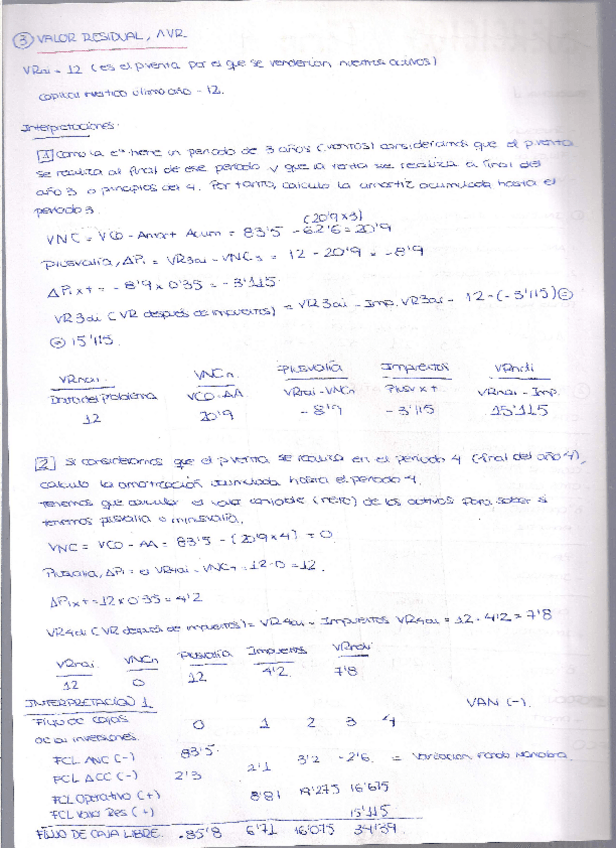 ③ VALOR RESIDUAL, ΛVR.
VRai = 12 (es el p.venta por el que se venderían nuestros activos)
capital rústico último año - 12.
Interpretaciones:
1 Como la eª tiene un periodo de 3 años (ventas) consideramos que el p.venta
se realiza al final de ese periodo y que la venta se realiza a final del
año 3 o principios del 4. Por tanto, calculo la amortiz acumulada hasta el
periodo 3.
(20'9 x 3)
VNC = VCO - Amort Acum = 83'5 - 62'6 = 20'9
Plusvalía, ΔPi = VR3ai - VNC3 = 12 - 20'9 = -8'9
ΔPi x t = -8'9 x 0'35 = -3'115
VR3di (VR después de impuestos) = VR3ai - Imp. VR3ai = 12 - (-3'115) =
= 15'115.
VRnai VNCn Plusvalía Impuestos VRndi
Datos del problema VCO-AA VRnai - VNCn Plusv x t VRnai - Imp.
12 20'9 -8'9 -3'115 15'115
2 Si consideramos que el p.venta se realiza en el periodo 4 (final del año 4),
calculo la amortización acumulada hasta el periodo 4.
Tenemos que calcular el valor contable (neto) de los activos para saber si
tenemos plusvalía o minusvalía.
VNC = VCO - AA = 83'5 - (20'9 x 4) = 0
Plusvalía, ΔPi = VR4ai - VNC4 = 12 - 0 = 12.
ΔPi x t = 12 x 0'35 = 4'2
VR4di (VR después de impuestos) = VR4ai - Impuestos VR4ai = 12 - 4'2 = 7'8
VRnai VNCn Plusvalía Impuestos VRndi
12 0 12 4'2 7'8
INTERPRETACIÓN 1. VAN (-).
Flujo de cajas 0 1 2 3 4
de las inversiones.
FCL ANC (-) 83'5.
FCL ACC (-) 2'3 2'1 3'2 -2'6. = Variación Fondo Maniobra.
FCL Operativo (+) 8'81 19'275 16'675
FCL Valor Res (+) 15'115
FLUJO DE CAJA LIBRE. -85'8 6'71 16'075 34'39.